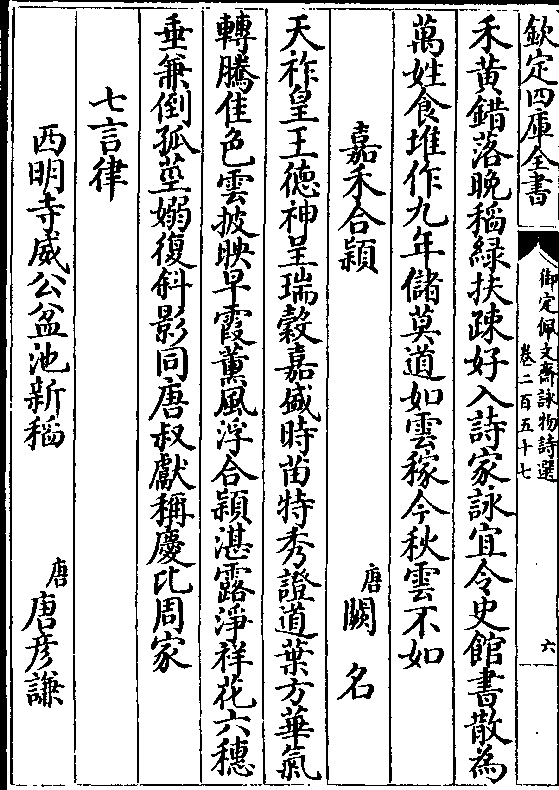 欽定四庫全書
御定佩文齋詠物詩選
卷二百五十七
六
禾黃錯落晚稻綠扶疎好入詩家詠宜令史館書散為
萬姓食堆作九年儲莫道如雲稼今秋雲不如
嘉禾合穎
唐
闕名
天祚皇王德神呈瑞穀嘉盛時苗特秀證道葉方華氣
轉騰佳色雲披映早霞薰風浮合穎湛露淨祥花六穗
垂兼倒孤莖嫋復斜影同唐叔獻稱慶比周家
七言律
西明寺威公盆池新稻
唐
唐彥謙